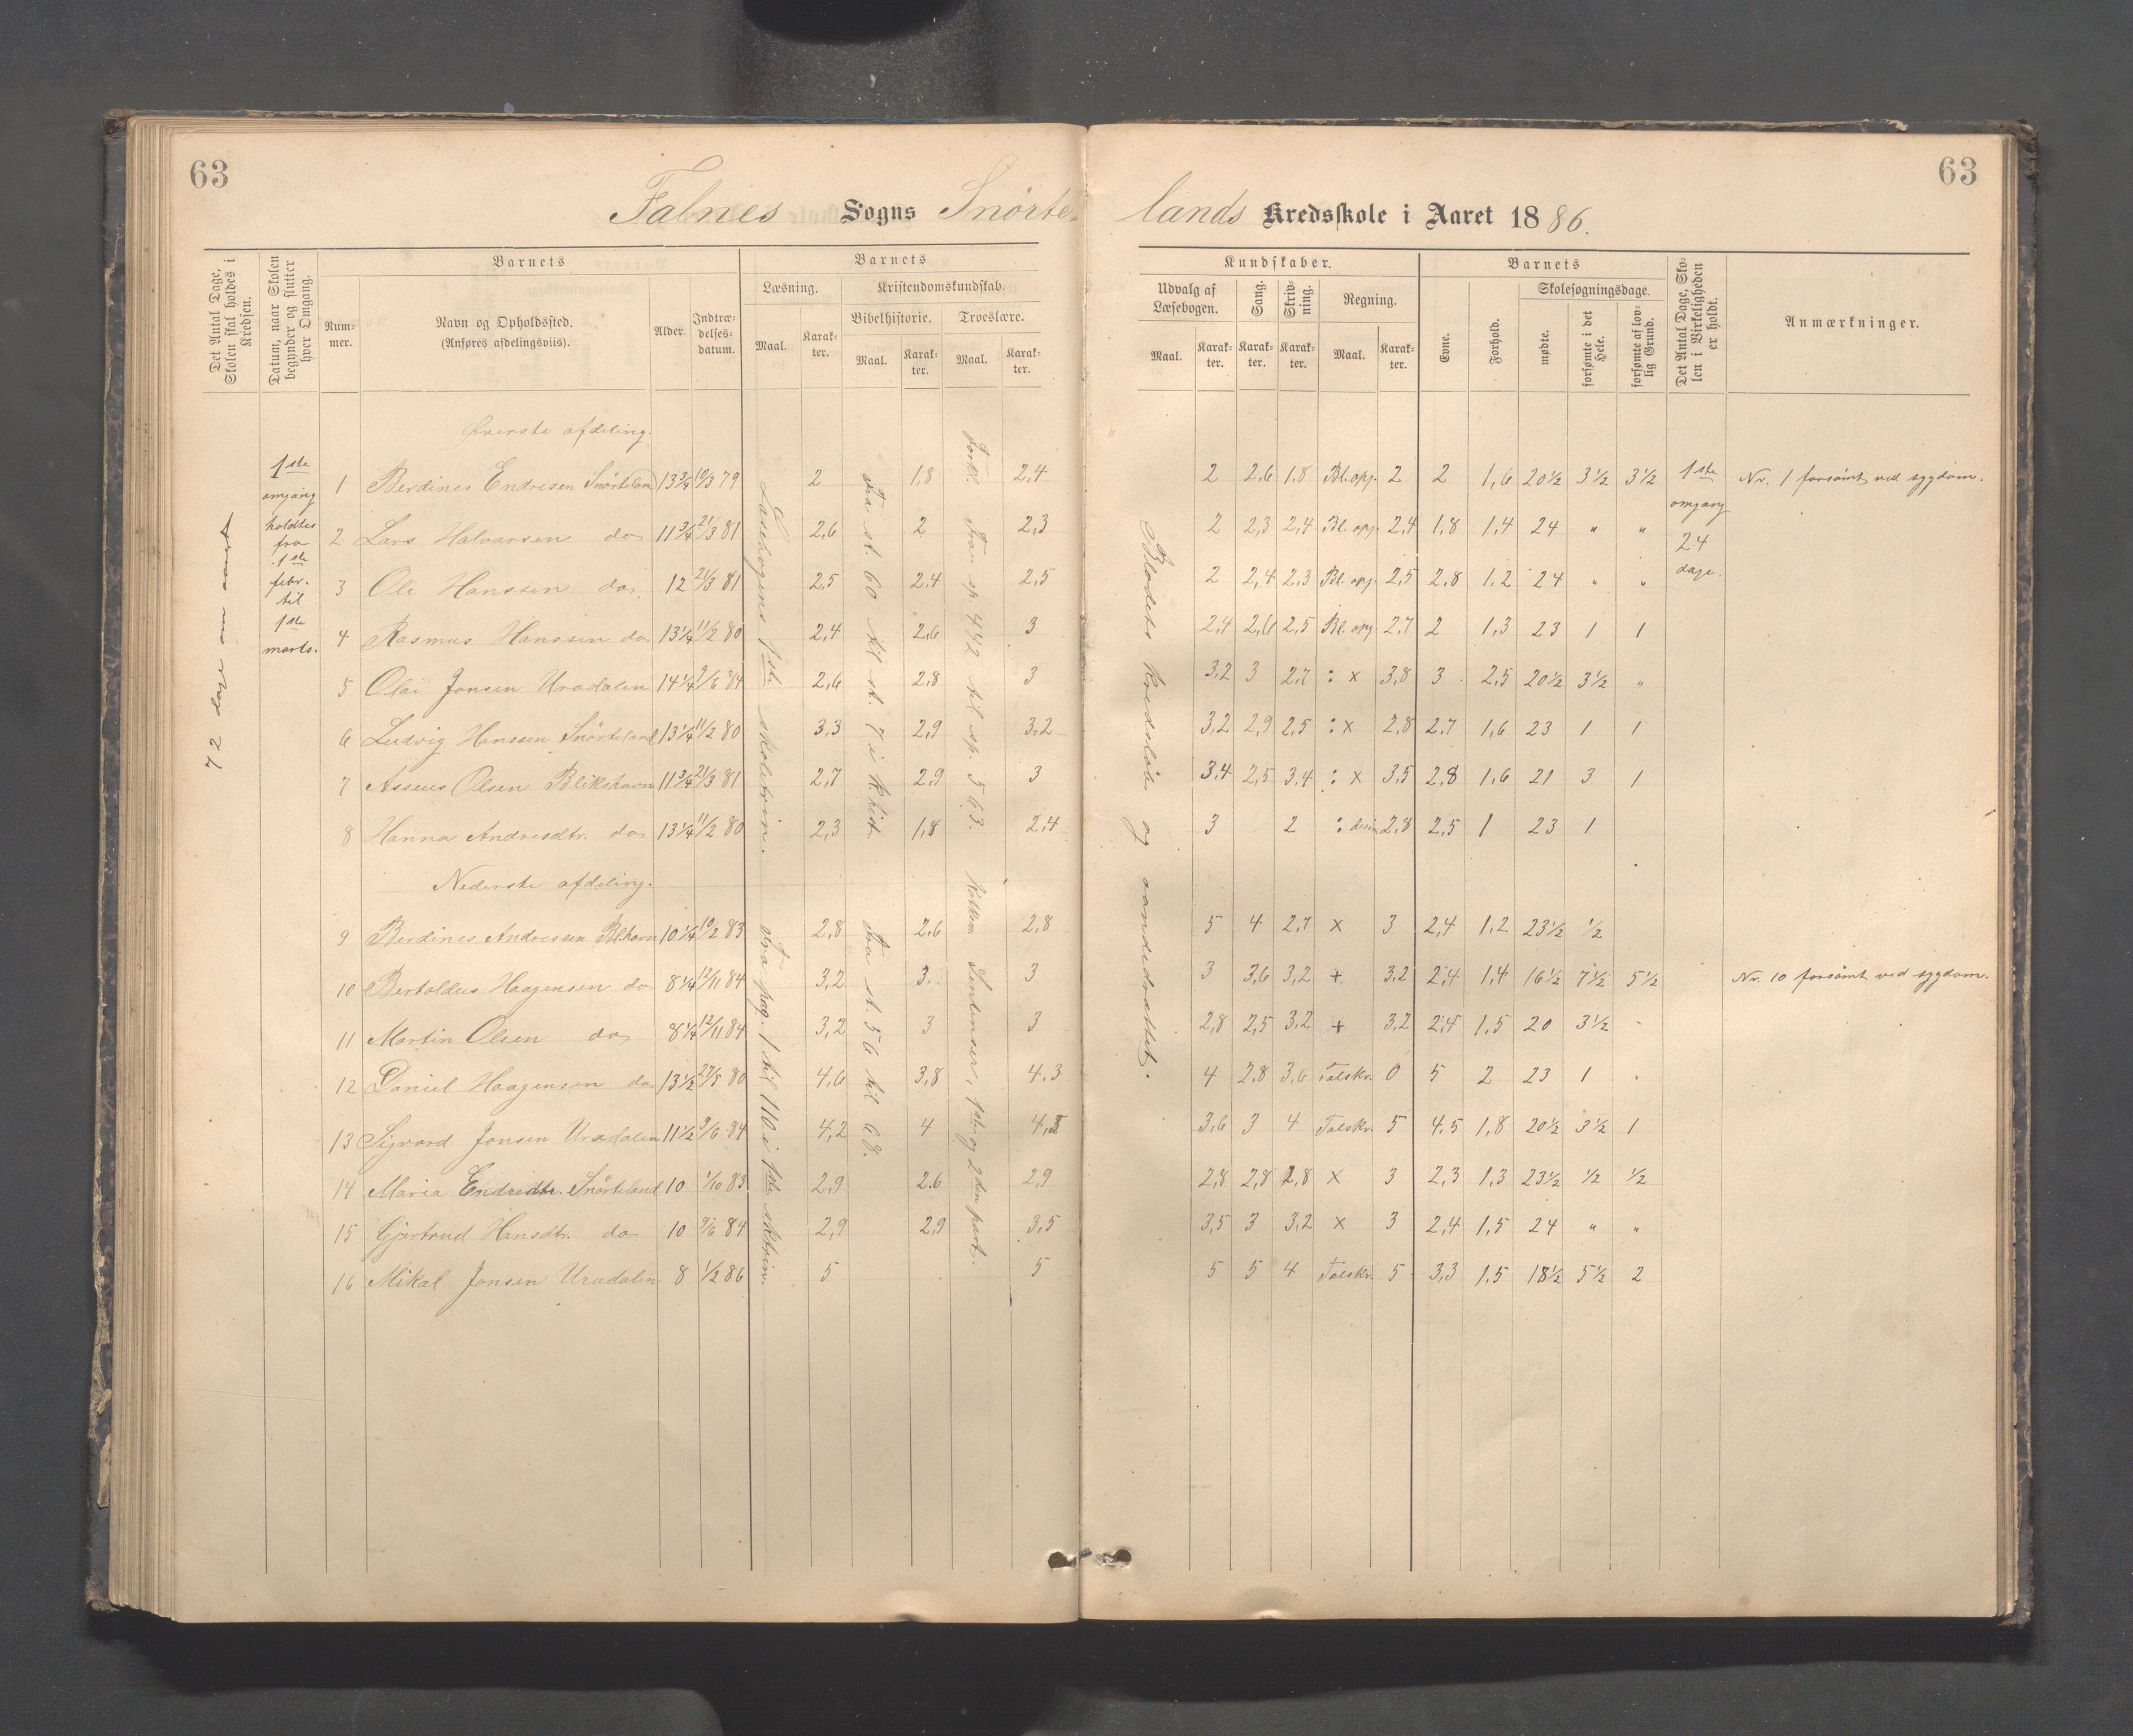 63
63
Falnes Sogns Snörte-
lands Kredsskole i Aaret 1886.
Det Antal Dage, Skolen skal holdes i Kredsen.
Datum, naar Skolen begynder og slutter hver Omgang.
Barnets
Nummer.
Navn og Opholdssted.
(Anføres afdelingsviis).
Alder.
Indtrædelsesdatum.
Barnets
Læsning.
Maal.
Karakter.
Kristendomskundskab.
Bibelhistorie.
Maal.
Karakter.
Troeslære.
Maal.
Karakter.
Kundskaber.
Udvalg af Læsebogen.
Maal.
Karakter.
Sang.
Karakter.
Skrivning.
Karakter.
Regning.
Maal.
Karakter.
Barnets
Evne.
Forhold.
Skolesøgningsdage.
mødte.
forsømte i det Hele.
forsømte af lovlig Grund.
Det Antal Dage, Skolen i Virkeligheden er holdt.
Anmærkninger.
72 dage om aaret
1ste omgang holdtes fra 1ste febr. til 1ste marts.
Överste afdeling.
1 Berdines Endresen Snörteland 13 3/4 10/3 79 2 1,8 2,4 2 2,6 1,8 Bl. opg. 2 2 1,6 20 1/2 3 1/2 3 1/2
2 Lars Halvarsen do 11 3/4 21/3 81 2,6 2 2,3 2 2,3 2,4 Bl. opg. 2,4 1,8 1,4 24 " "
3 Ole Hanssen do 12 21/3 81 2,5 2,4 2,5 2 2,4 2,3 Bl. opg. 2,5 2,8 1,2 24 " "
4 Rasmus Hanssen do 13 1/4 11/2 80 2,4 2,6 3 2,4 2,6 2,5 Bl. opg. 2,7 2 1,3 23 1 1
5 Olai Jonsen Uradalen 14 1/4 9/6 84 2,6 2,8 3 3,2 3 2,7 : x 3,8 3 2,5 20 1/2 3 1/2 "
6 Ludvig Hanssen Snörteland 13 1/4 11/2 80 3,3 2,9 3,2 3,2 2,9 2,5 : x 2,8 2,7 1,6 23 1 1
7 Asseus Olsen Blikshavn 11 3/4 21/3 81 2,7 2,9 3 3,4 2,5 3,4 : x 3,5 2,8 1,6 21 3 1
8 Hanna Andresdtr. do 13 1/4 11/2 80 2,3 1,8 2,4 3 2 : 2,8 2,5 1 23 1
Nederste afdeling.
9 Berdines Andressen Bl.havn 10 1/4 10/2 83 2,8 2,6 2,8 5 4 2,7 x 3 2,4 1,2 23 1/2 1/2
10 Bertoldus Haagensen do 8 1/4 12/11 84 3,2 3 3 3 3,6 3,2 + 3,2 2,4 1,4 16 1/2 7 1/2 5 1/2
11 Martin Olsen do 8 1/4 12/11 84 3,2 3 3 2,8 2,5 3,2 + 3,2 2,4 1,5 20 3 1/2 -
12 Daniel Haagensen do 13 1/2 27/5 80 4,6 3,8 4,3 4 2,8 3,6 Talskr. 0 5 2 23 1 .
13 Sigvard Jonsen Uradalen 11 1/2 9/6 84 4,2 4 3,6 3 4 Talskr. 5 4,5 1,8 20 1/2 3 1/2 1
14 Maria Endredtr. Snörteland 10 1/10 83 2,9 2,6 2,9 2,8 2,8 2,8 x 3 2,3 1,3 23 1/2 1/2 1/2
15 Gjertrud Hansdtr. do 10 9/6 84 2,9 2,9 3,5 3,5 3 3,2 x 3 2,4 1,5 24 " "
16 Mikal Jonsen Uradalen 8 1/2 86 5 5 5 5 4 Talskr. 5 3,3 1,5 18 1/2 5 1/2 2
1ste skoletrin.
fra pag. 1 til 110 i 1ste sktrin.
fra st. 60 til st. 7 i K.hist.
fra st. 56 til 68.
Forkl. Fra sp. 442 til sp. 563.
Sentenser, 1ste og 2den part.
Blodets kredsløb og aandedrættet.
1ste omgang 24 dage.
Nr. 1 forsömt ved sygdom.
Nr. 10 forsömt ved sygdom.